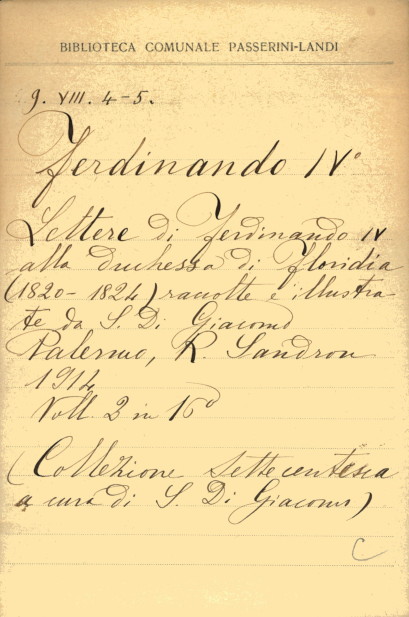 BIBLIOTECA COMUNALE PASSERINI-LANDI
9. VIII. 4-5.
Ferdinando IV°
Lettere di Ferdinando IV
alla duchessa di Floridia
(1820-1824) raccolte e illustra-
te da S. Di Giacomo
Palermo, R. Sandron
1914
Voll. 2 in 16°
(Collezione settecentesca
a cura di S. Di Giacomo)
C